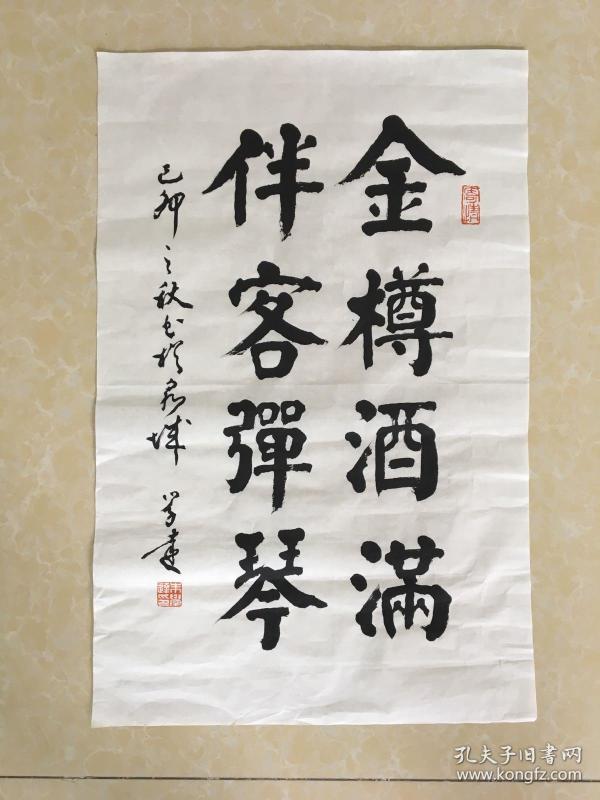 金樽酒滿
伴客彈琴
己卯之秋书於泉城 学建
孔夫子旧書网
www.kongfz.com